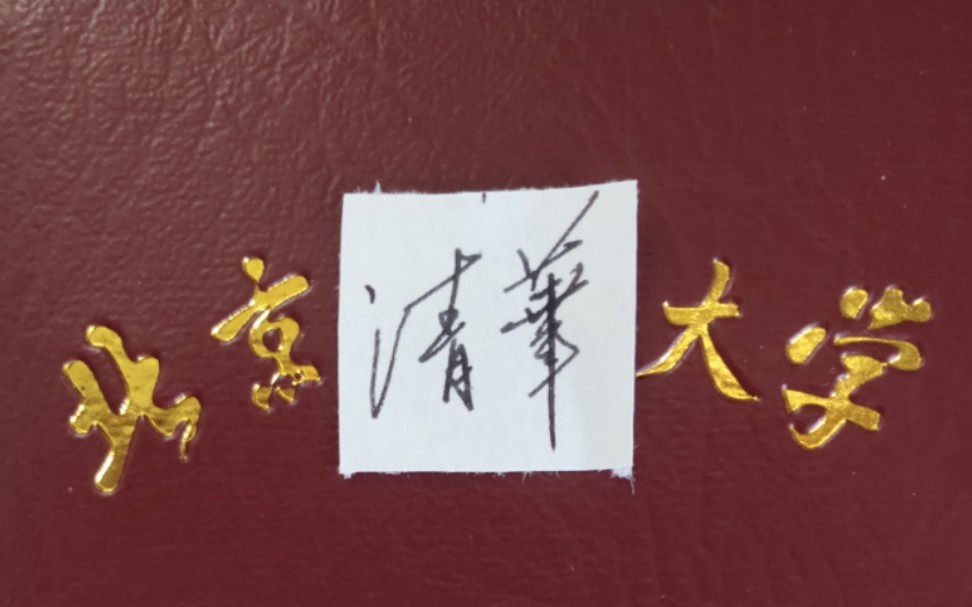 北京清華大学